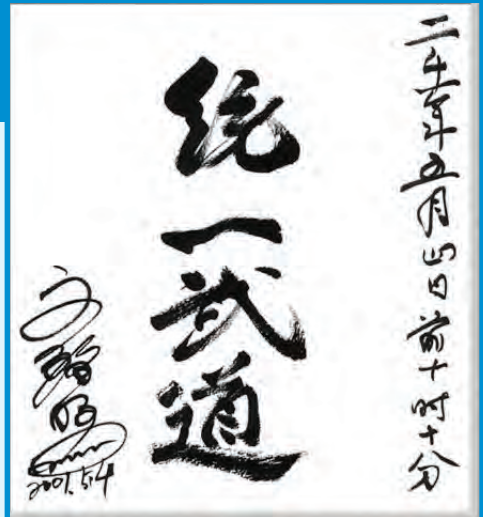 二千一年五月四日前十时十分
統一武道
文鮮明
2001.5.4